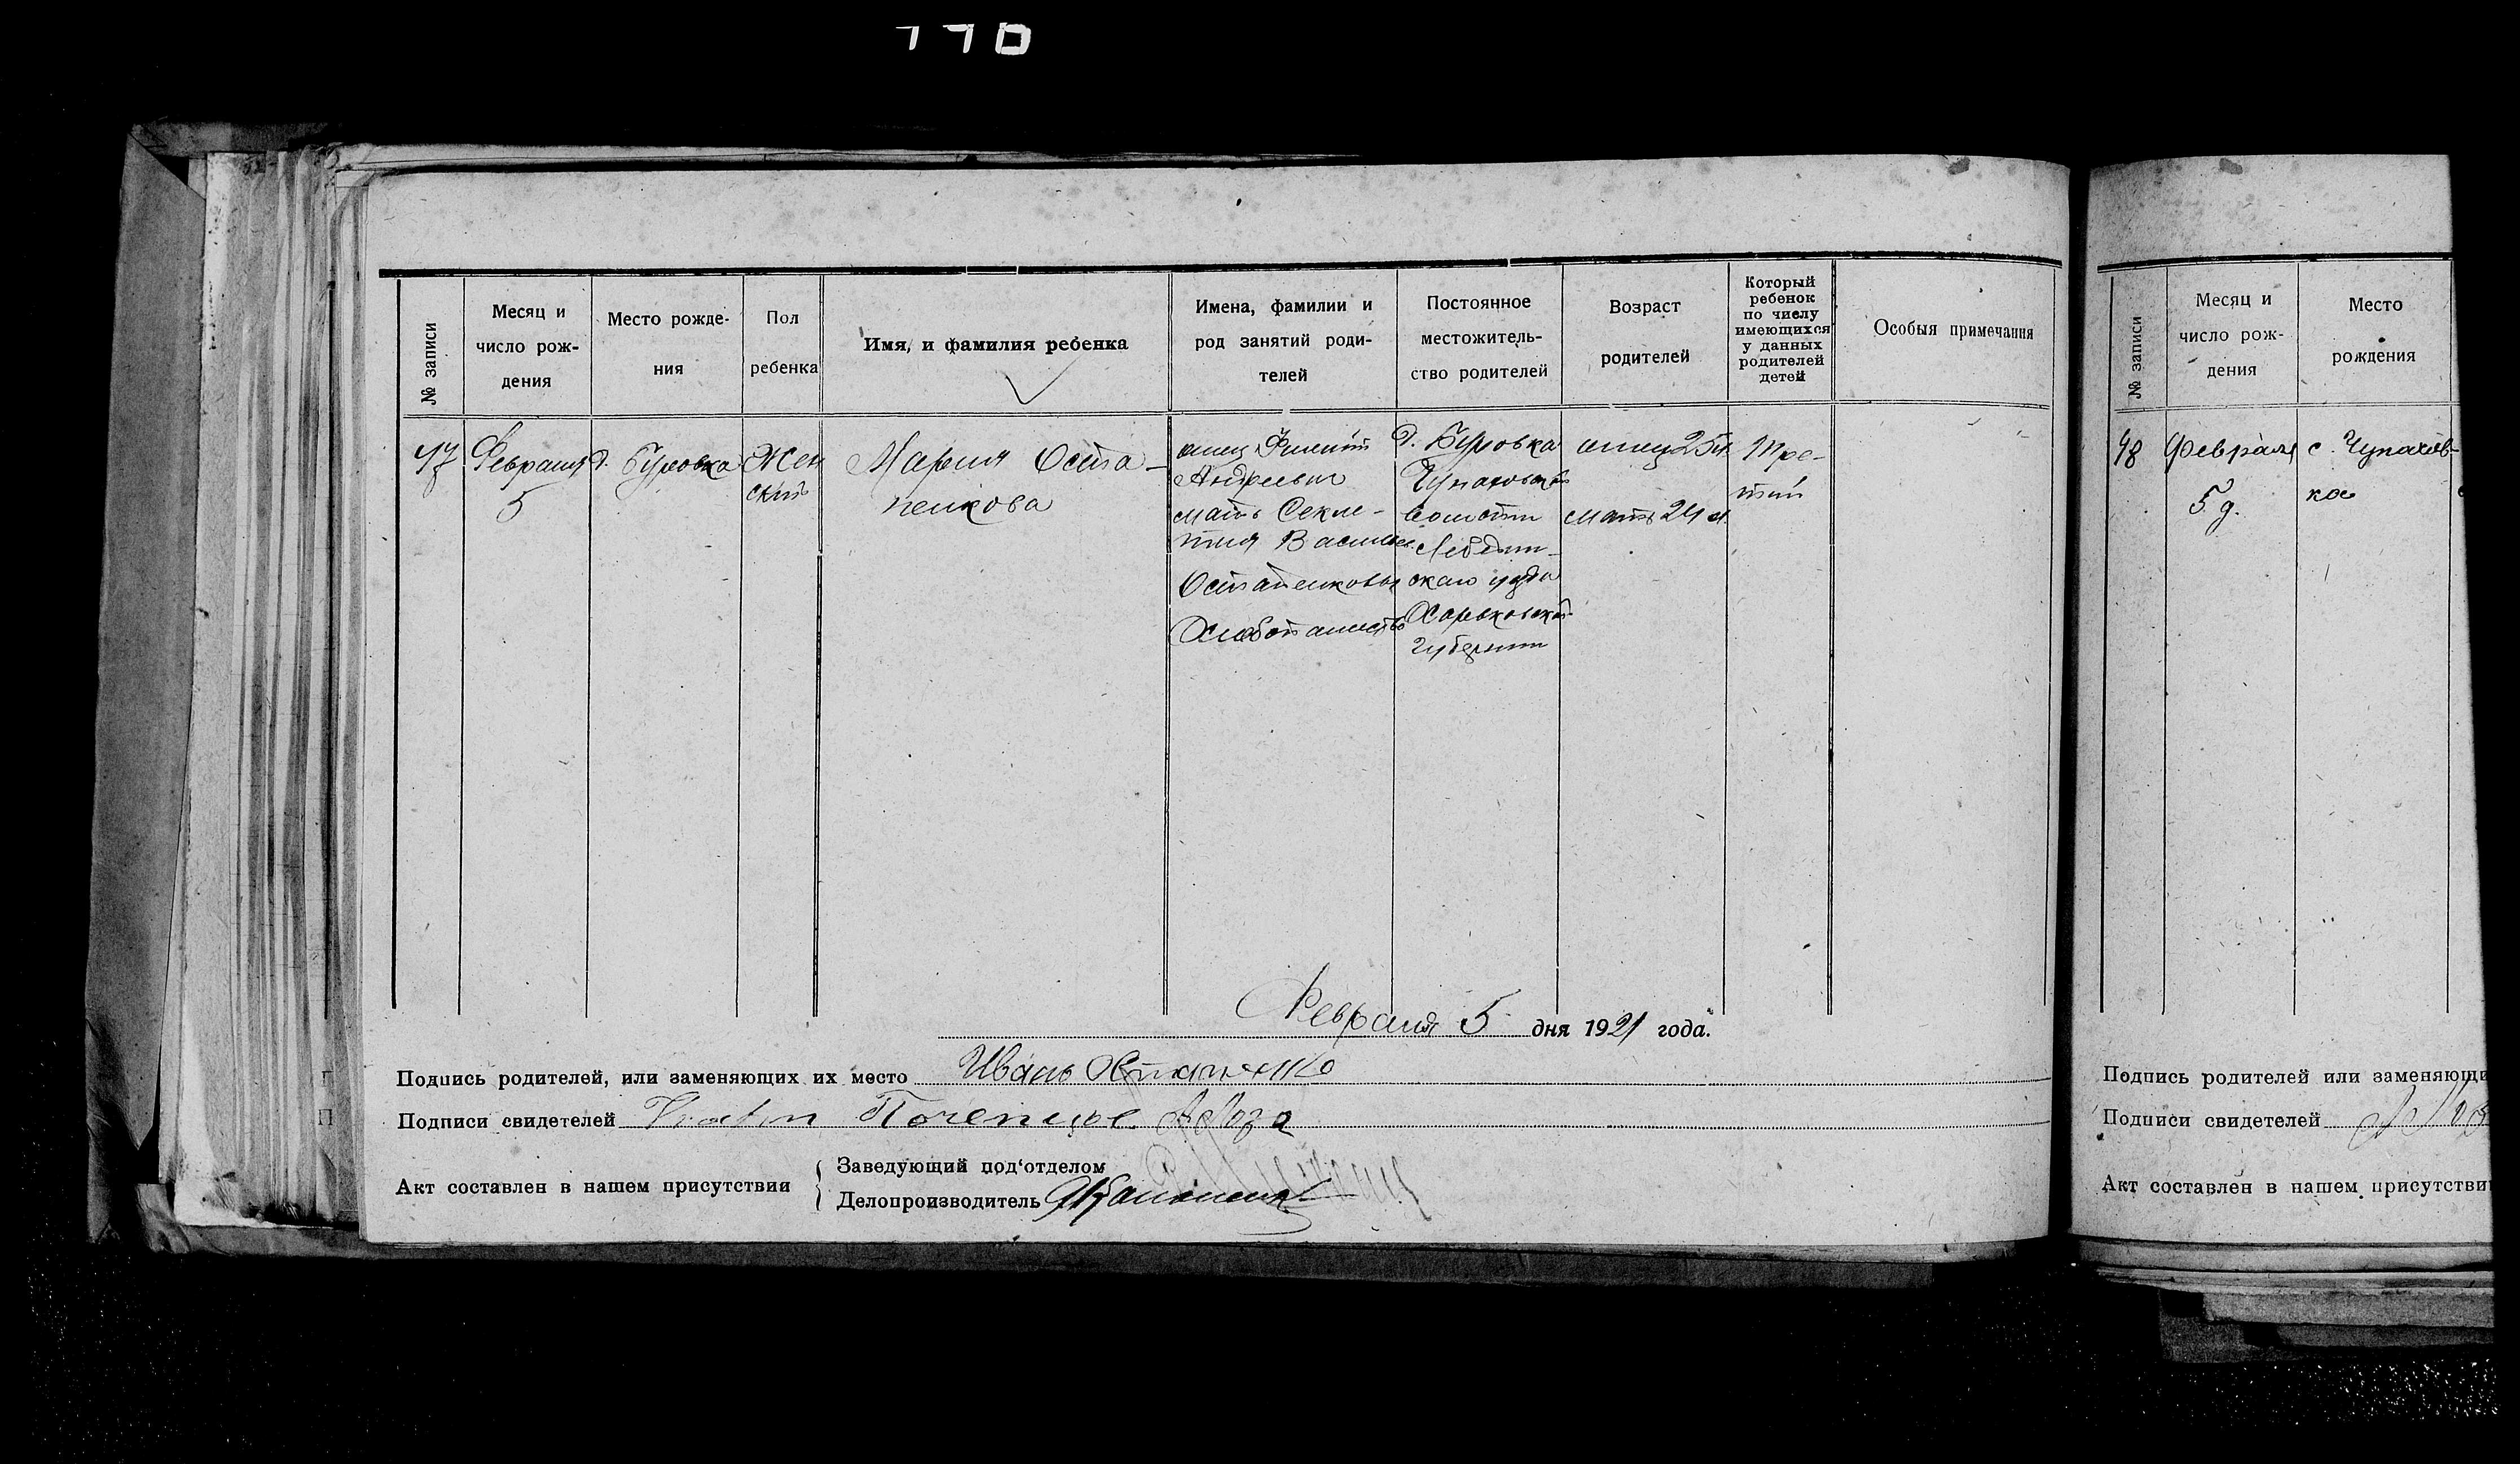 770
№ записи
Месяц и число рож-дения
Место рожде-ния
Пол ребенка
Имя, и фамилия ребенка
Имена, фамилии и род занятий роди-телей
Постоянное местожитель-ство родителей
Возраст родителей
Который ребенок по числу имеющихся у данных родителей детей
Особыя примечания
17
Февраля
5
д. Буровка
Жен
ский
Мария Оста-
пенкова
отец Филипп
Андреевич
мать Секле-
тия Василье.
Остапенковы
Хлебопашество
д. Буровка
Чупаховской
волости
Лебедин-
скаго уезда
Харьковской
губернии
отец 25 л.
мать 24 л.
Тре-
тий
Февраля 5 дня 1921 года.
Подпись родителей, или заменяющих их место Иван Остапенко
Подписи свидетелей
Акт составлен в нашем присутствии
Заведующий под‘отделом
Делопроизводитель
№ записи
Месяц и число рож-дения
Место рождения
18
Февраля
5 д.
с. Чупахов-
ка
Подпись родителей или заменяющи
Подписи свидетелей
Акт составлен в нашем присутстви